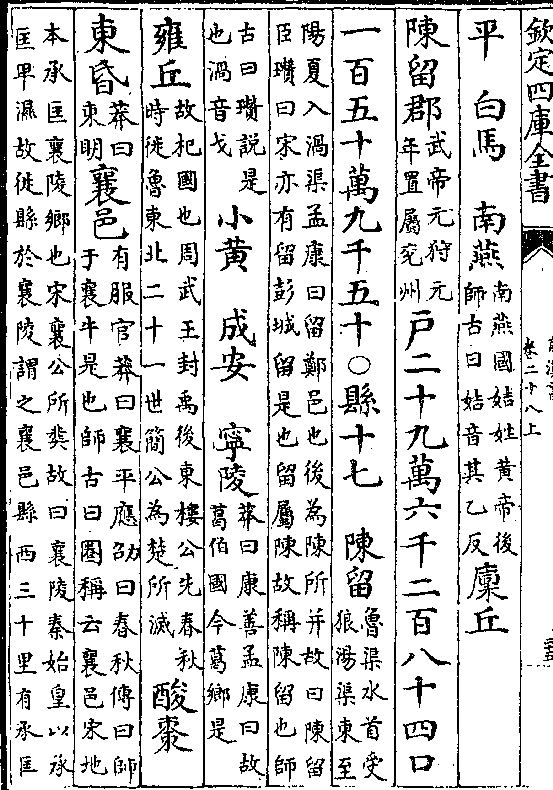 欽定四庫全書
卷二十八上
平 白馬 南燕南燕國姞姓黃帝後師古曰姞音其乙反廩丘
陳留郡武帝元狩元年置屬兖州戸二十九萬六千二百八十四口
一百五十萬九千五十○縣十七 陳留魯渠水首受狼湯渠東至
陽夏入渦渠孟康曰留鄭邑也後為陳所并故曰陳留臣瓚曰宋亦有留彭城留是也留屬陳故稱陳留也師
古曰瓚説是也渦音戈 小黃 成安 寧陵莽曰康善孟康曰故葛伯國今葛鄉是
雍丘故杞國也周武王封禹後東樓公先春秋時徙魯東北二十一世簡公為楚所滅 酸棗
東昏莽曰東明襄邑有服官莽曰襄平應劭曰春秋傳曰師于襄牛是也師古曰圏稱云襄邑宋地
本承匡襄陵鄉也宋襄公所葬故曰襄陵秦始皇以承匡卑濕故徙縣於襄陵謂之襄邑縣西三十里有承匡